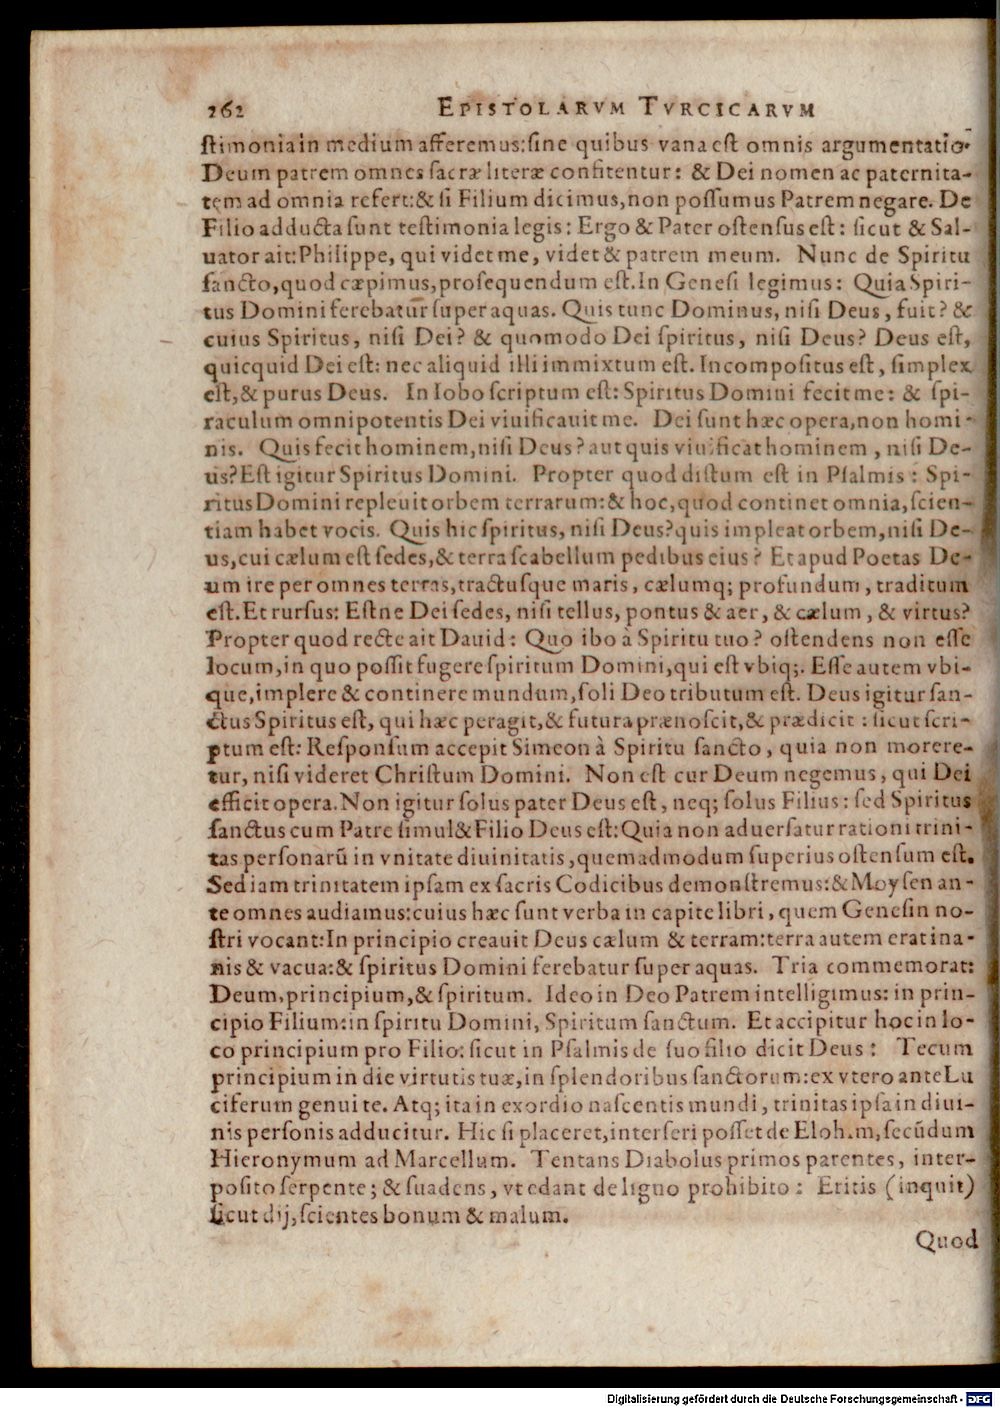 262 EPISTOLARVM TVRCICARVM
ſtimonia in medium afferemus: ſine quibus vana eſt omnis argumentatio.
Deum patrem omnes ſacræ literæ confitentur: & Dei nomen ac paternita-
tem ad omnia refert: & ſi Filium dicimus, non poſſumus Patrem negare. De
Filio adducta ſunt teſtimonia legis: Ergo & Pater oſtenſus eſt: ſicut & Sal-
uator ait: Philippe, qui videt me, videt & patrem meum. Nunc de Spiritu
ſancto, quod cæpimus, proſequendum eſt. In Geneſi legimus: Quia Spiri-
tus Domini ferebatur ſuper aquas. Quis tunc Dominus, niſi Deus, fuit? &
cuius Spiritus, niſi Dei? & quomodo Dei ſpiritus, niſi Deus? Deus eſt,
quicquid Dei eſt: nec aliquid illi immixtum eſt. Incompoſitus eſt, ſimplex
eſt, & purus Deus. In Iobo ſcriptum eſt: Spiritus Domini fecit me: & ſpi-
raculum omnipotentis Dei viuificauit me. Dei ſunt hæc opera, non homi-
nis. Quis fecit hominem, niſi Deus? aut quis viuificat hominem, niſi De-
us? Eſt igitur Spiritus Domini. Propter quod dictum eſt in Pſalmis: Spi-
ritus Domini repleuit orbem terrarum: & hoc, quod continet omnia, ſcien-
tiam habet vocis. Quis hic ſpiritus, niſi Deus? quis impleat orbem, niſi De-
us, cui cælum eſt ſedes, & terra ſcabellum pedibus eius? Et apud Poetas De-
um ire per omnes terras, tractuſque maris, cælumq; profundum, traditum
eſt. Et rurſus: Eſtne Dei ſedes, niſi tellus, pontus & aer, & cælum, & virtus?
Propter quod recte ait Dauid: Quo ibo à Spiritu tuo? oſtendens non eſſe
locum, in quo poſſit fugere ſpiritum Domini, qui eſt vbiq;. Eſſe autem vbi-
que, implere & continere mundum, ſoli Deo tributum eſt. Deus igitur ſan-
ctus Spiritus eſt, qui hæc peragit, & futura prænoſcit, & prædicit: ſicut ſcri-
ptum eſt: Reſponſum accepit Simeon à Spiritu ſancto, quia non morere-
tur, niſi videret Chriſtum Domini. Non eſt cur Deum negemus, qui Dei
efficit opera. Non igitur ſolus pater Deus eſt, neq; ſolus Filius: ſed Spiritus
ſanctus cum Patre ſimul & Filio Deus eſt: Quia non aduerſatur rationi trini-
tas perſonarũ in vnitate diuinitatis, quemadmodum ſuperius oſtenſum eſt.
Sed iam trinitatem ipſam ex ſacris Codicibus demonſtremus: & Moyſen an-
te omnes audiamus: cuius hæc ſunt verba in capite libri, quem Geneſin no-
ſtri vocant: In principio creauit Deus cælum & terram: terra autem erat ina-
nis & vacua: & ſpiritus Domini ferebatur ſuper aquas. Tria commemorat:
Deum, principium, & ſpiritum. Ideo in Deo Patrem intelligimus: in prin-
cipio Filium: in ſpiritu Domini, Spiritum ſanctum. Et accipitur hoc in lo-
co principium pro Filio: ſicut in Pſalmis de ſuo filio dicit Deus: Tecum
principium in die virtutis tuæ, in ſplendoribus ſanctorum: ex vtero ante Lu
ciferum genui te. Atq; ita in exordio naſcentis mundi, trinitas ipſa in diui-
nis perſonis adducitur. Hic ſi placeret, interſeri poſſet de Elohim, ſecũdum
Hieronymum ad Marcellum. Tentans Diabolus primos parentes, inter-
poſito ſerpente; & ſuadens, vt edant de ligno prohibito: Eritis (inquit)
ſicut dij, ſcientes bonum & malum.
Quod
Digitalisierung gefördert durch die Deutsche Forschungsgemeinschaft - DFG